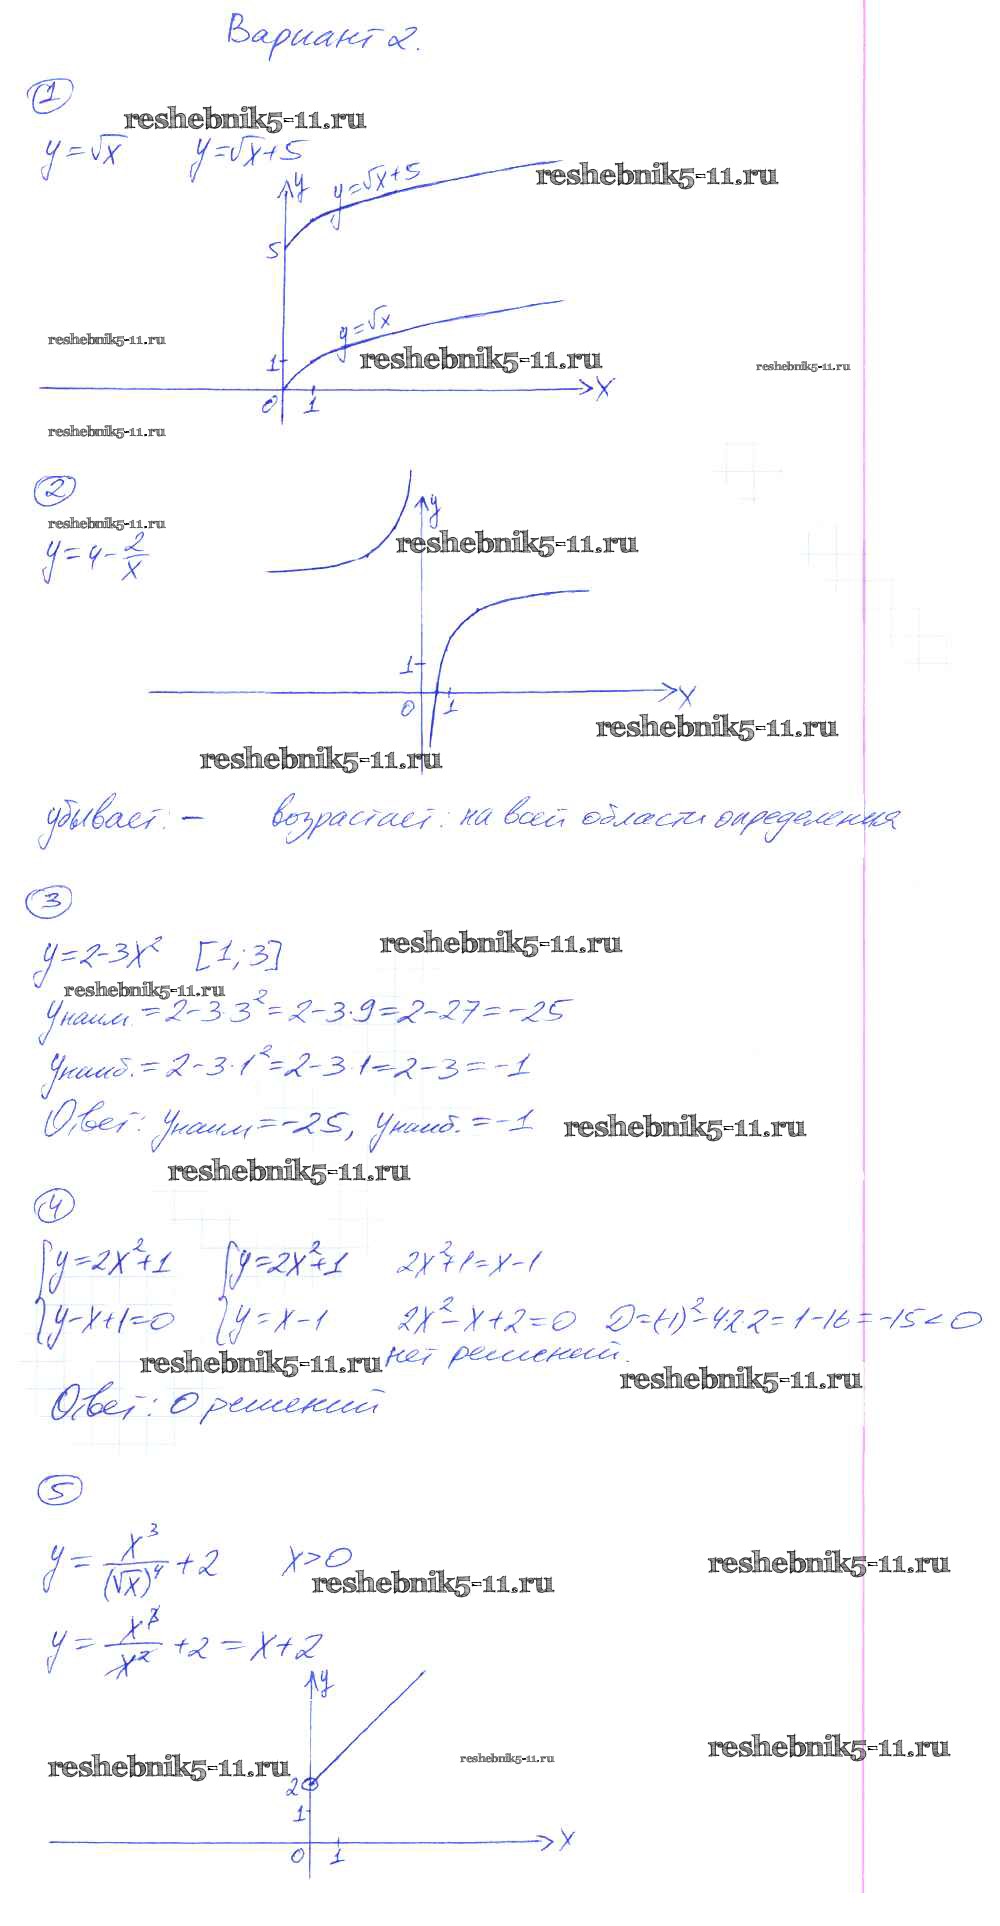 Вариант 2.
1
reshebnik5-11.ru
y=√x y=√x+5
reshebnik5-11.ru
y
y=√x+5
5
y=√x
reshebnik5-11.ru
reshebnik5-11.ru
reshebnik5-11.ru
1
0 1 x
reshebnik5-11.ru
2
reshebnik5-11.ru
y
reshebnik5-11.ru
y=4-2/x
1
0 1 x
reshebnik5-11.ru
reshebnik5-11.ru
убывает: – возрастает: на всей области определения
3
reshebnik5-11.ru
y=2-3x² [1; 3]
reshebnik5-11.ru
yнаим.=2-3·3²=2-3·9=2-27=-25
yнаиб.=2-3·1²=2-3·1=2-3=-1
Ответ: yнаим=-25, yнаиб.=-1
reshebnik5-11.ru
reshebnik5-11.ru
4
{y=2x²+1 {y=2x²+1 2x²+1=x-1
{y-x+1=0 {y=x-1 2x²-x+2=0 D=(-1)²-4·2·2=1-16=-15<0
reshebnik5-11.ru
нет решений.
reshebnik5-11.ru
Ответ: 0 решений
5
y=x³/(√x)⁴+2 x>0
reshebnik5-11.ru
reshebnik5-11.ru
y=x³/x²+2=x+2
y
reshebnik5-11.ru
reshebnik5-11.ru
reshebnik5-11.ru
2
1
0 1 x